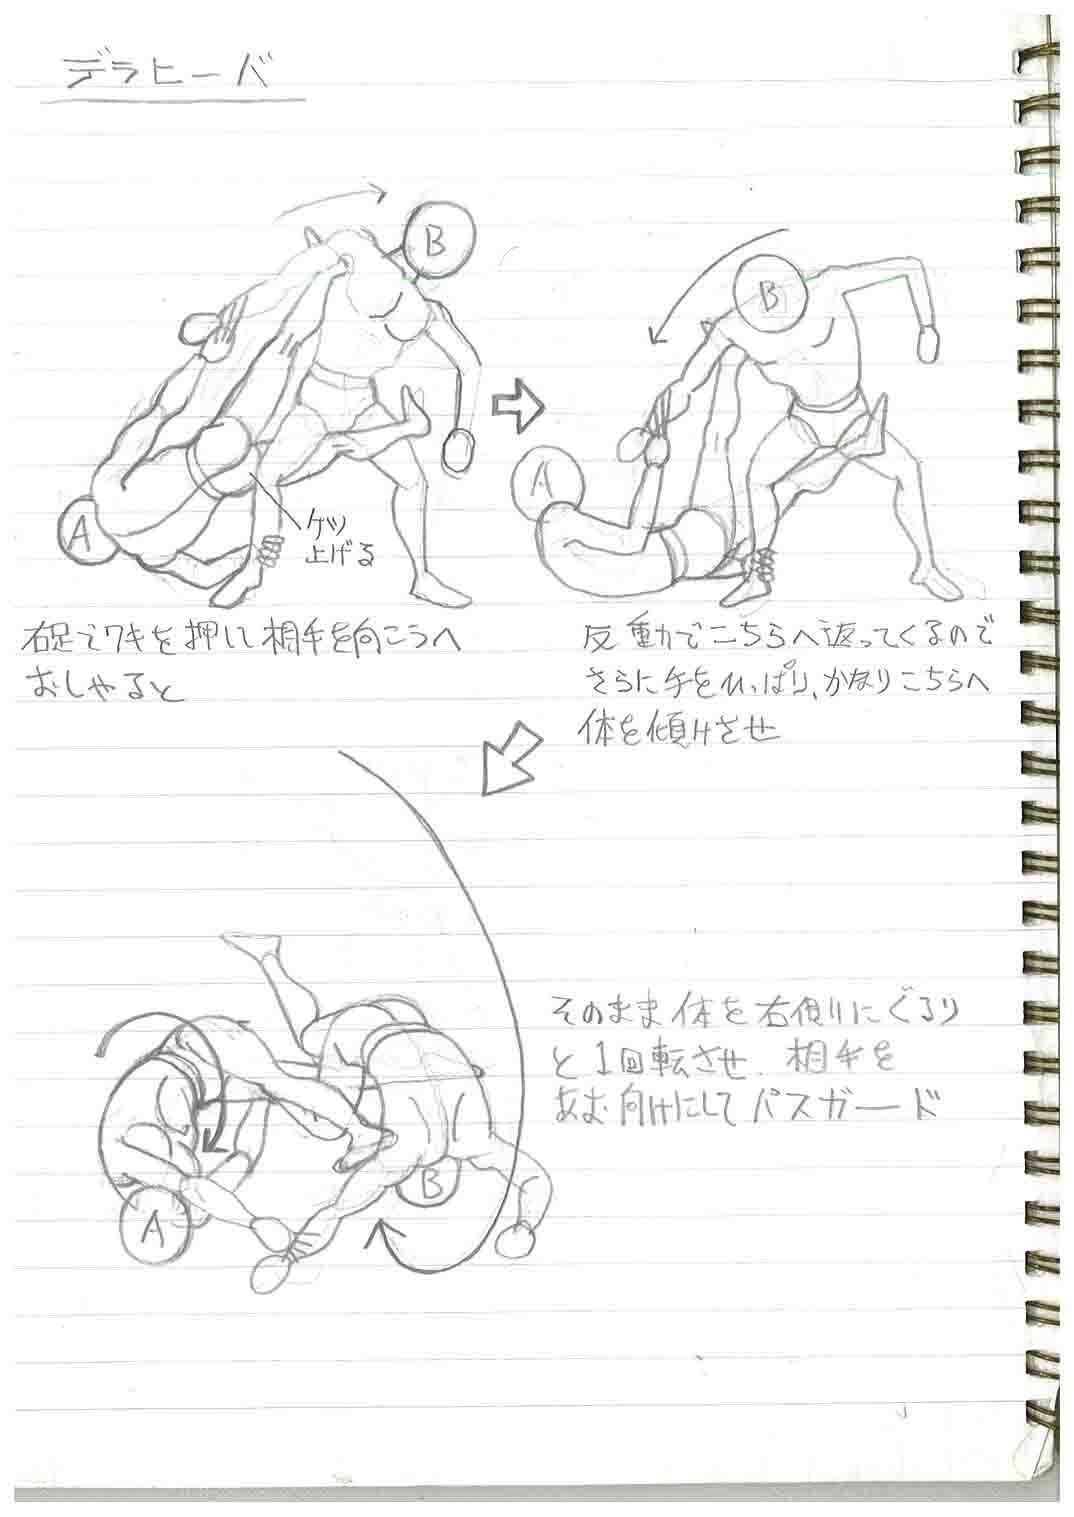 デラヒーバ
B
A
ケツ
上げる
B
A
右足でワキを押して相手を向こうへ
おしやると
反動でこちらへ返ってくるので
さらに手をひっぱり、かなりこちらへ
体を傾けさせ
そのまま体を右側にぐるり
と1回転させ、相手を
あお向けにしてパスガード
A
B